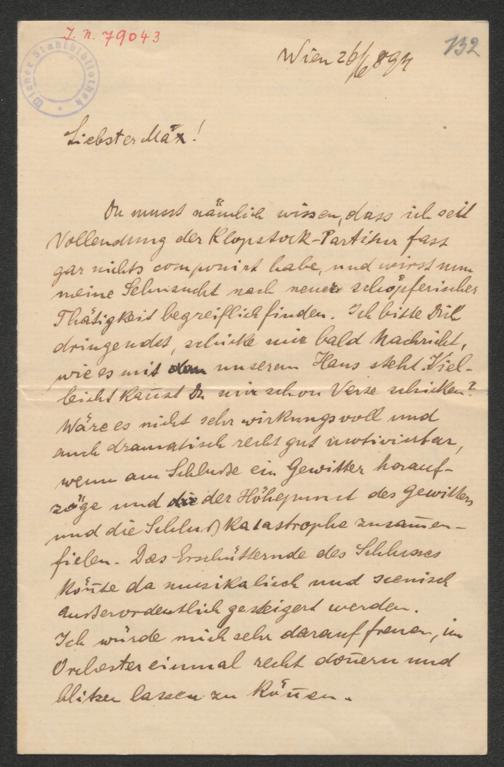 J. N. 79043
132
Wiener Stadtbibliothek
Wien 26/6 894
Liebster Max!
Du musst nämlich wissen, dass ich seit
Vollendung der Klopstock-Partitur fast
gar nichts componirt habe, und wirst nun
meine Sehnsucht nach neuer schöpferischer
Thätigkeit begreiflich finden. Ich bitte Dich
dringendst, schicke mir bald Nachricht,
wie es mit dem unserem Hans steht. Viel-
leicht kannst Du mir schon Verse schicken?
Wäre es nicht sehr wirkungsvoll und
auch dramatisch recht gut motivirbar,
wenn am Schluße ein Gewitter herauf-
zöge und die der Höhepunct des Gewitters
und die Schlußkatastrophe zusam̅en-
fielen. Das Erschütternde des Schlusses
kön̅te da musikalisch und scenisch
außerordentlich gesteigert werden.
Ich würde mich sehr darauf freuen, im
Orchester einmal recht don̅ern und
blitzen lassen zu kön̅en.